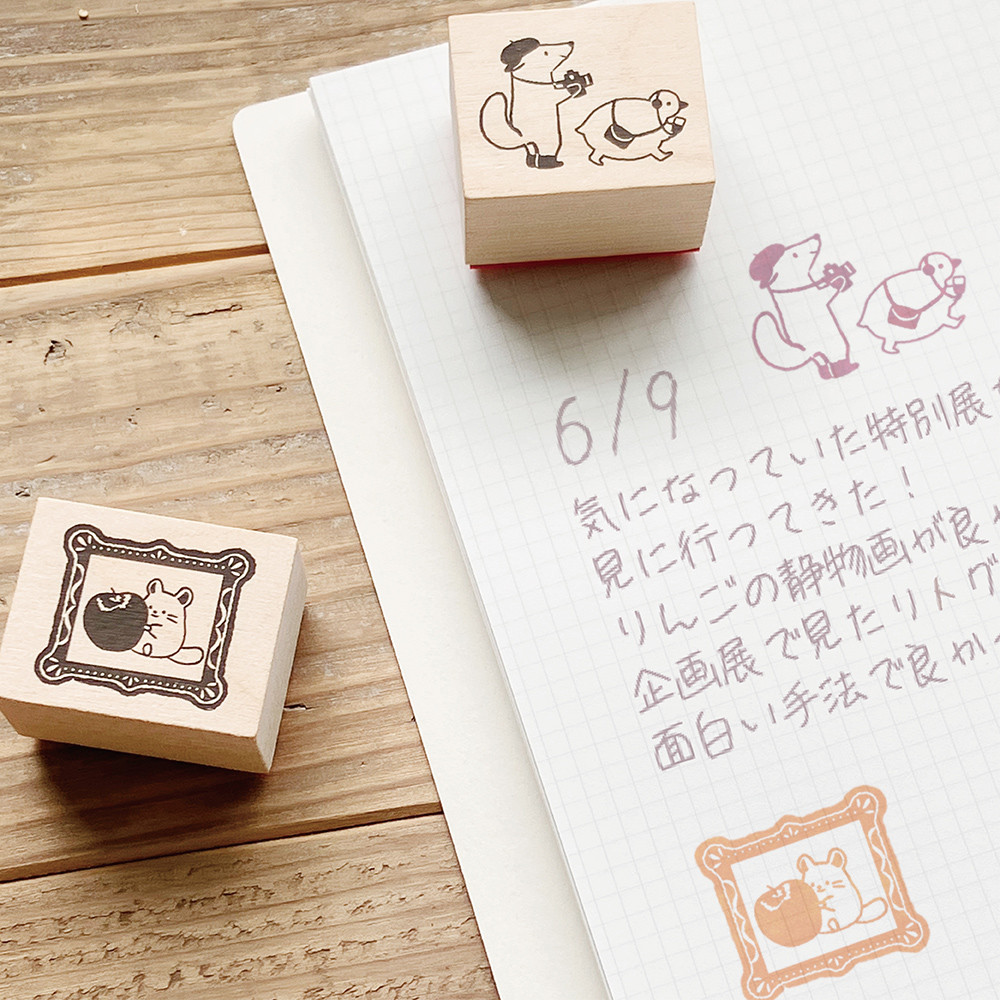 6/9
気になっていた特別展
見に行ってきた！
りんごの静物画が良
企画展で見たリトグ
面白い手法で良か